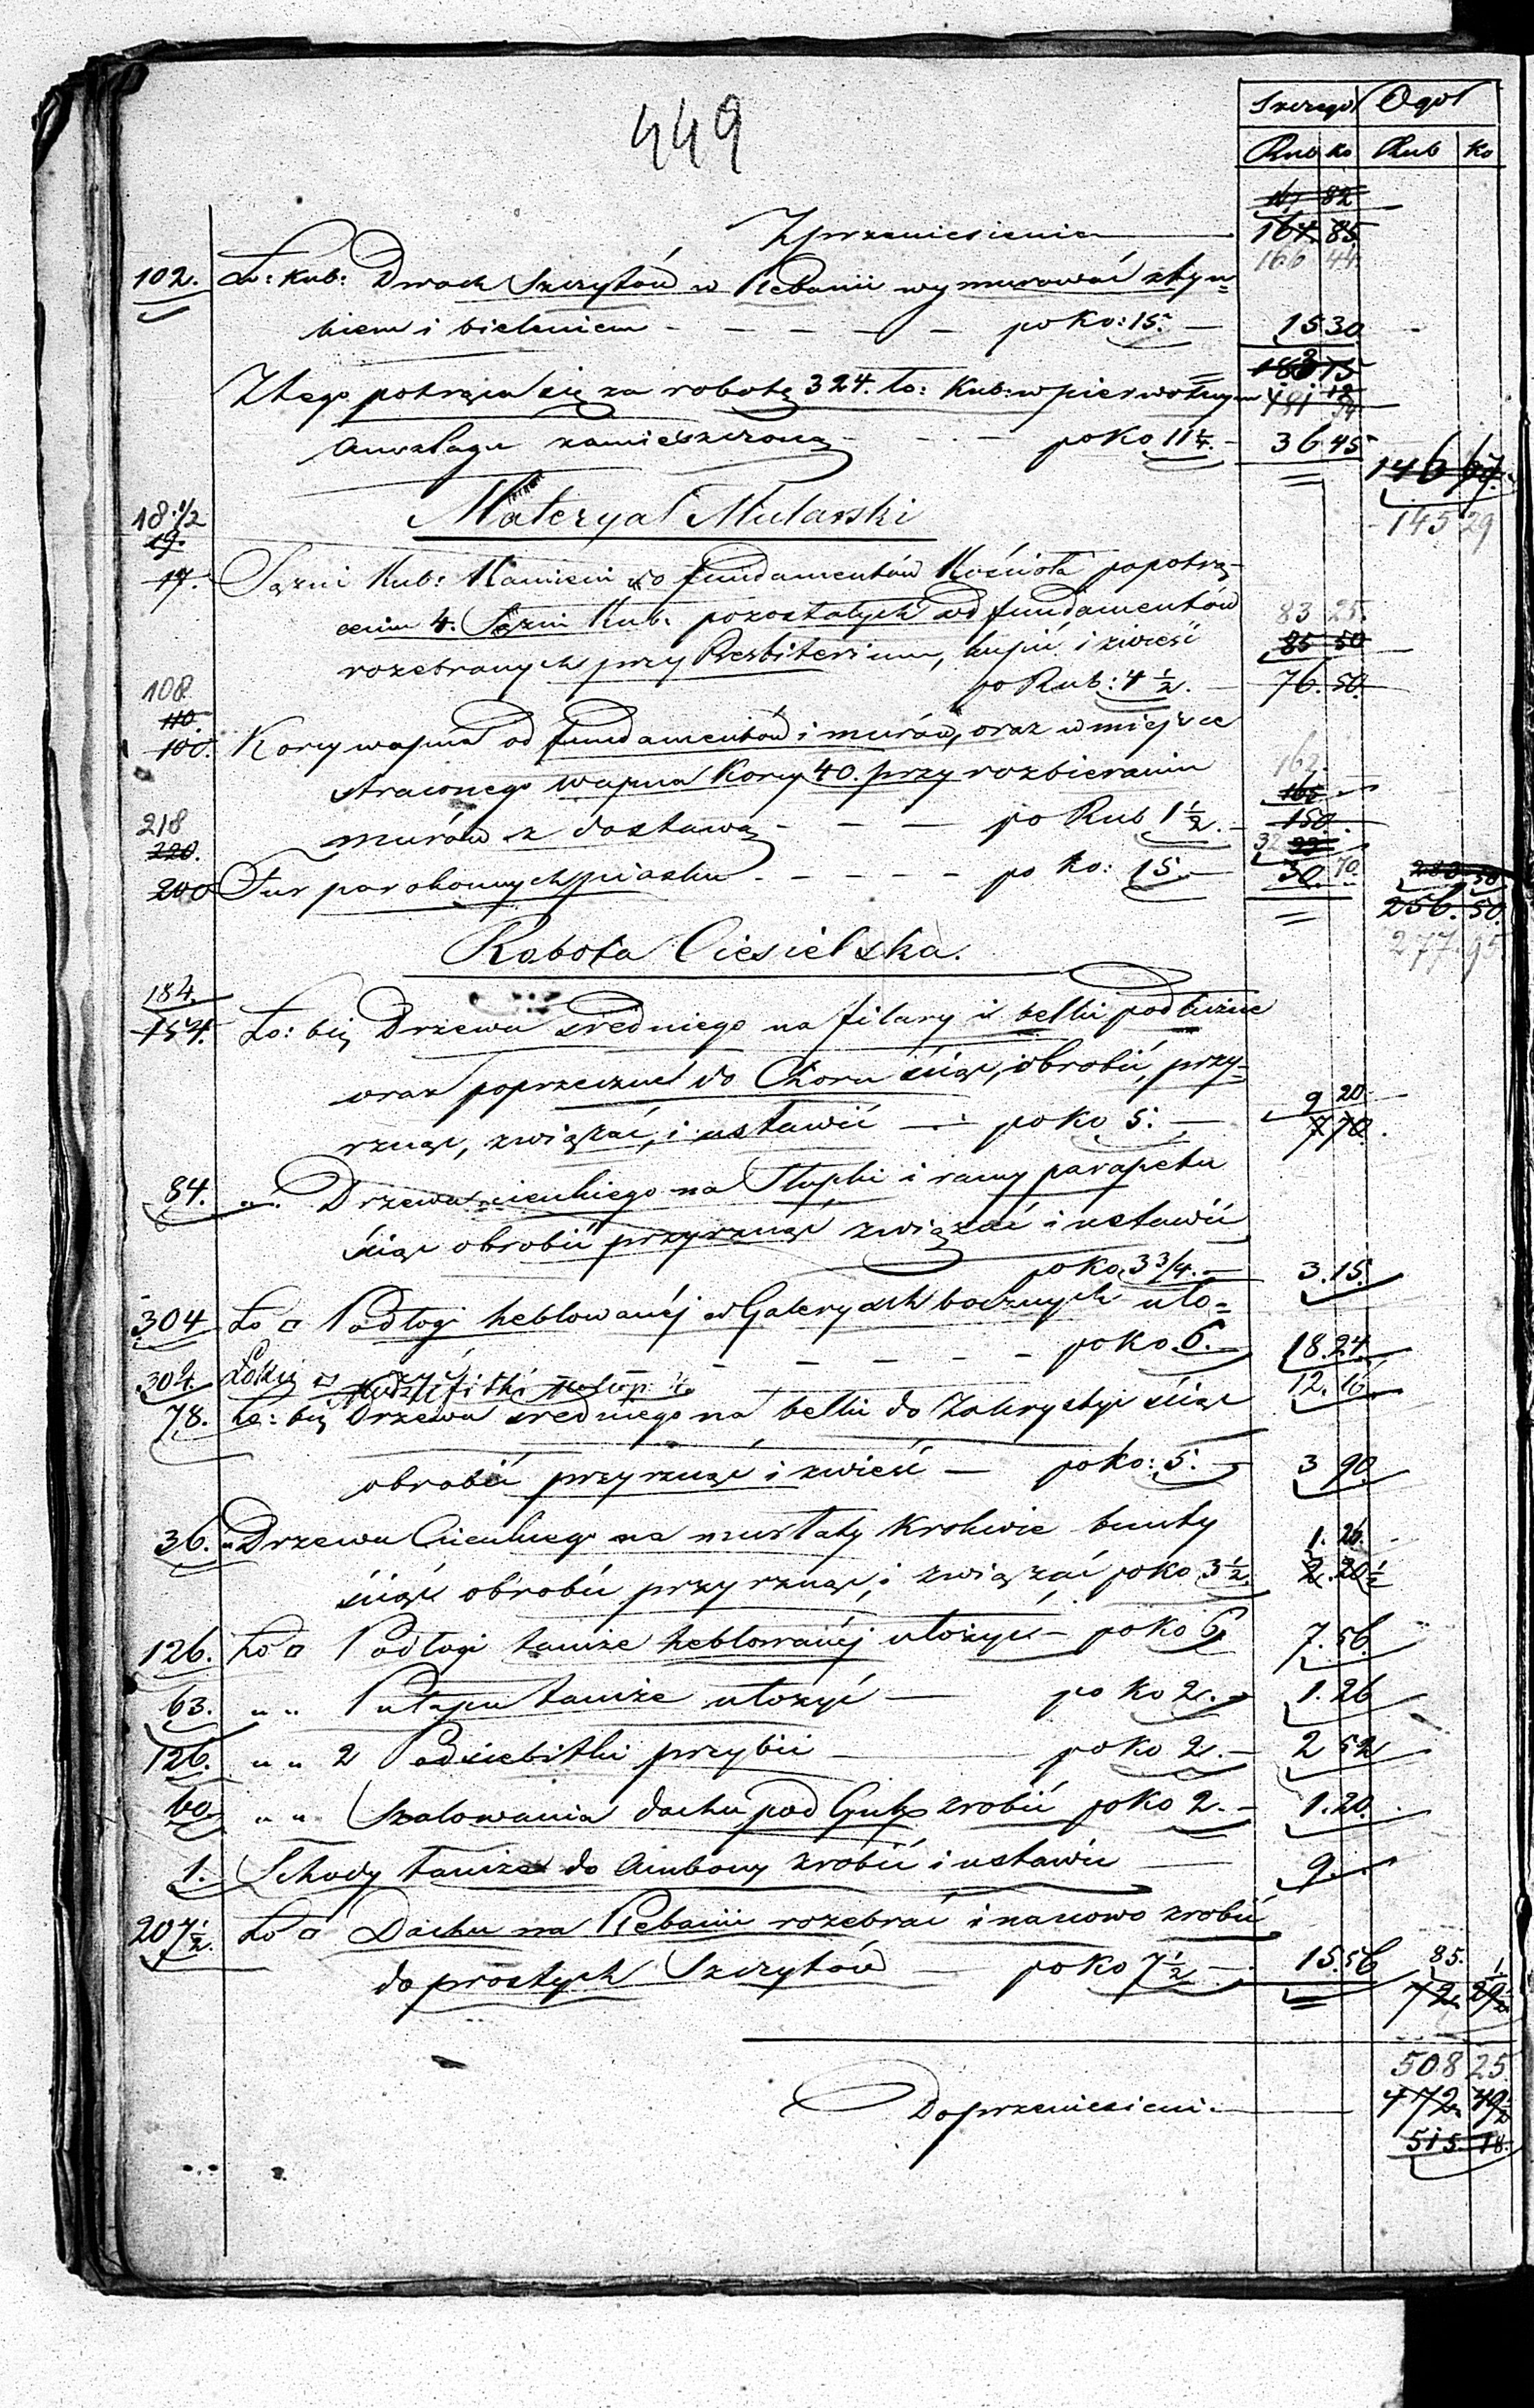 449
Szczegół Ogół
Rub ko Rub Ko
82
Zprzeniesienia 164 85
166 44
102. Ło: Kub: Dwoch Szczytów w Plebanii wymurować ztyn=
kiem i bieleniem - - - - - po Ko: 15. - 15 30
183 15
Ztego potrąca się za robotę 324. ło: Kub: w pierwotnym 181
Anszlagu zamieszczoną - - - po Ko 11 1/4. - 36 45
146 67
145 29
Materyał Mularski
18 1/2
19.
17. Sążni Kub: Kamieni do fundamentów Kościoła popotrą-
ceniu 4. Sążni Kub. pozostałych od fundamentów 83 25.
rozebranych przy Presbiterium, kupić i zwieść 85 50
po Rub: 4 1/2. - 76. 50.
108
110.
100. Korcy wapna od fundamentów i murów, oraz w miejsce
straconego wapna Korcy 40. przy rozbieraniu 162.
165
murów z dostawą - - - po Rub 1 1/2. - 150.
218
220. 32 33
200 Fur parokonnych piasku - - - - - po ko: 15. - 30. 70 280 50
256. 50.
277. 95.
Robota Ciesielska.
184.
154. Ło: bię Drzewa średniego na filary i belki podłużne
oraz poprzeczne do Choru ściąć, obrobić, przy=
rznąć, związać, i ustawić - po ko 5. - 9 20
7 70.
84. " Drzewa cienkiego na Słupki i ramy parapetu
ściąć obrobić przyrznąć związać i ustawić
po ko. 3 3/4. - 3. 15.
304 Ło □ Podłogi heblowanéj w Galeryach bocznych uło=
- - - - - po ko. 6. - 18. 24.
304. Łokci □ 12. 16.
78. Ło: bię Drzewa średniego na belki do Zakrystyi ściąć
obrobić przyrznąć i zwieść - po ko: 5. - 3 90.
36. " Drzewa Cienkiego na murłaty Krokwie banty 1. 26.
ściąć obrobić przyrznąć, i związać po ko 3 1/2. 2. 20 1/2
126. Ło □ Podłogi tamże heblowanéj ułożyć - po ko 6 7. 56
63. " " Pułapu tamże ułożyć - po ko 2. - 1. 26
126. " " 2 Podsiebitki przybić - po ko 2. - 2 52
60. " " Szalowania dachu pod Gulz zrobić po ko 2. - 1. 20.
1. Schody tamże do Ambony zrobić i ustawić 9. .
207 1/2. Ło □ Dachu na Plebanii rozebrać i nanowo zrobić
do prostych Szczytów - po ko 7 1/2 - 15. 56 85. 1
72. 29 1/2
508 25
Doprzeniesieni. 472. 49 1/2
515. 18.